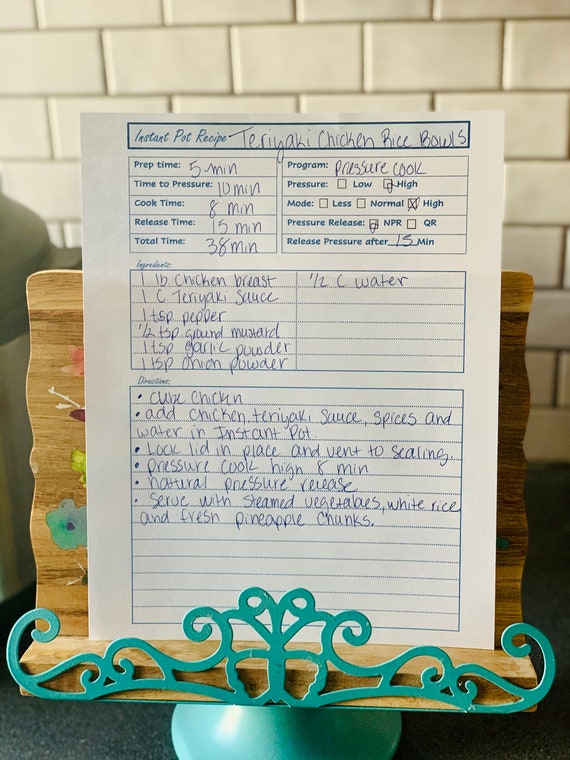 Instant Pot Recipe Teriyaki Chicken Rice Bowls
Prep time: 5 min
Program: pressure cook
Time to Pressure: 10 min
Pressure: Low High
Cook Time: 8 min
Mode: Less Normal High
Release Time: 15 min
Pressure Release: NPR QR
Total Time: 38 min
Release Pressure after 15 Min
Ingredients:
1 lb chicken breast
1/2 C water
1 C Teriyaki Sauce
1 tsp pepper
1/2 tsp ground mustard
1 tsp garlic powder
1 tsp onion powder
Directions:
• cube chicken
• add chicken, teriyaki sauce, spices and
water in Instant Pot.
• Lock lid in place and vent to sealing.
• pressure cook high 8 min
• natural pressure release
• serve with steamed vegetables, white rice
and fresh pineapple chunks.